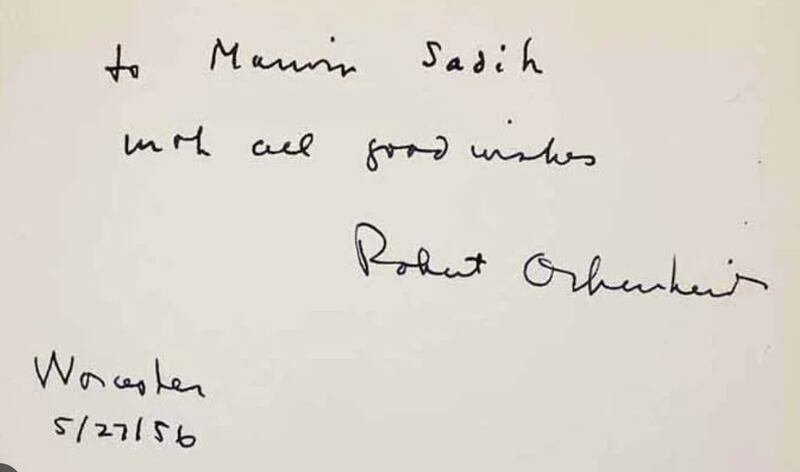 to Marvin Sadik
with all good wishes
Robert Oppenheimer
Worcester
5/27/56